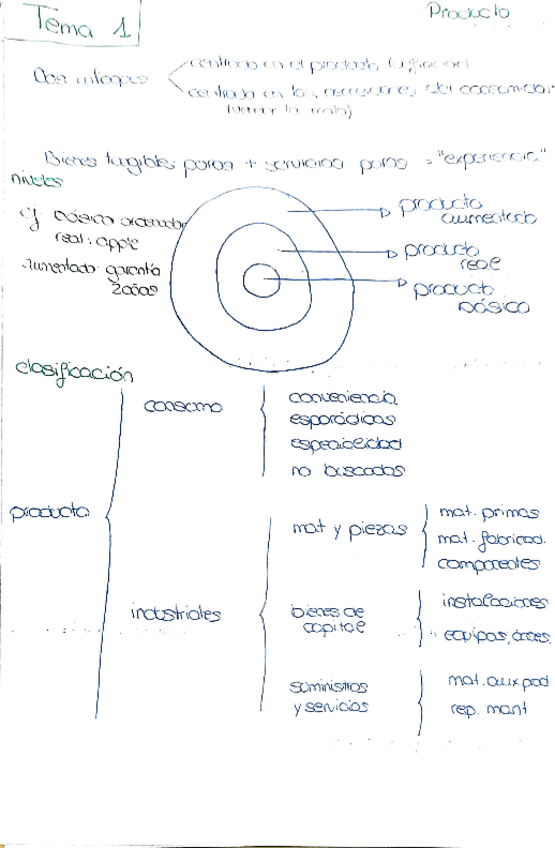 Tema 1
Producto
Dos enfoques
centrado en el producto
centrado en las necesidades del consumidor
Bienes tangibles puros + servicios puros = "experiencia"
niveles
ej básico ordenador
real: apple
aumentado garantía
2 años
producto
aumentado
producto
real
producto
básico
clasificación
producto
consumo
conveniencia
esporádicos
especialidad
no buscados
industriales
mat y piezas
mat. primas
mat. fabricad.
componentes
bienes de
capital
instalaciones
equipos,
suministros
y servicios
mat. aux prod
rep. mant